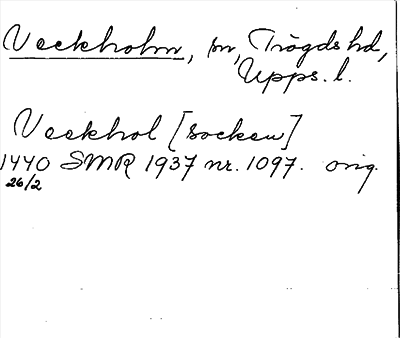 Veckholm, sn, Trögds hd,
Upps. l.
Veckhol [socken]
1440 SMR 1937 nr. 1097. orig.
26/2